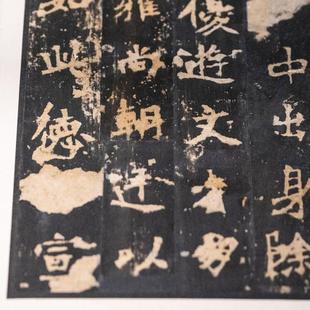 中出身除
優遊文
雅尚朝廷以
如此德宣